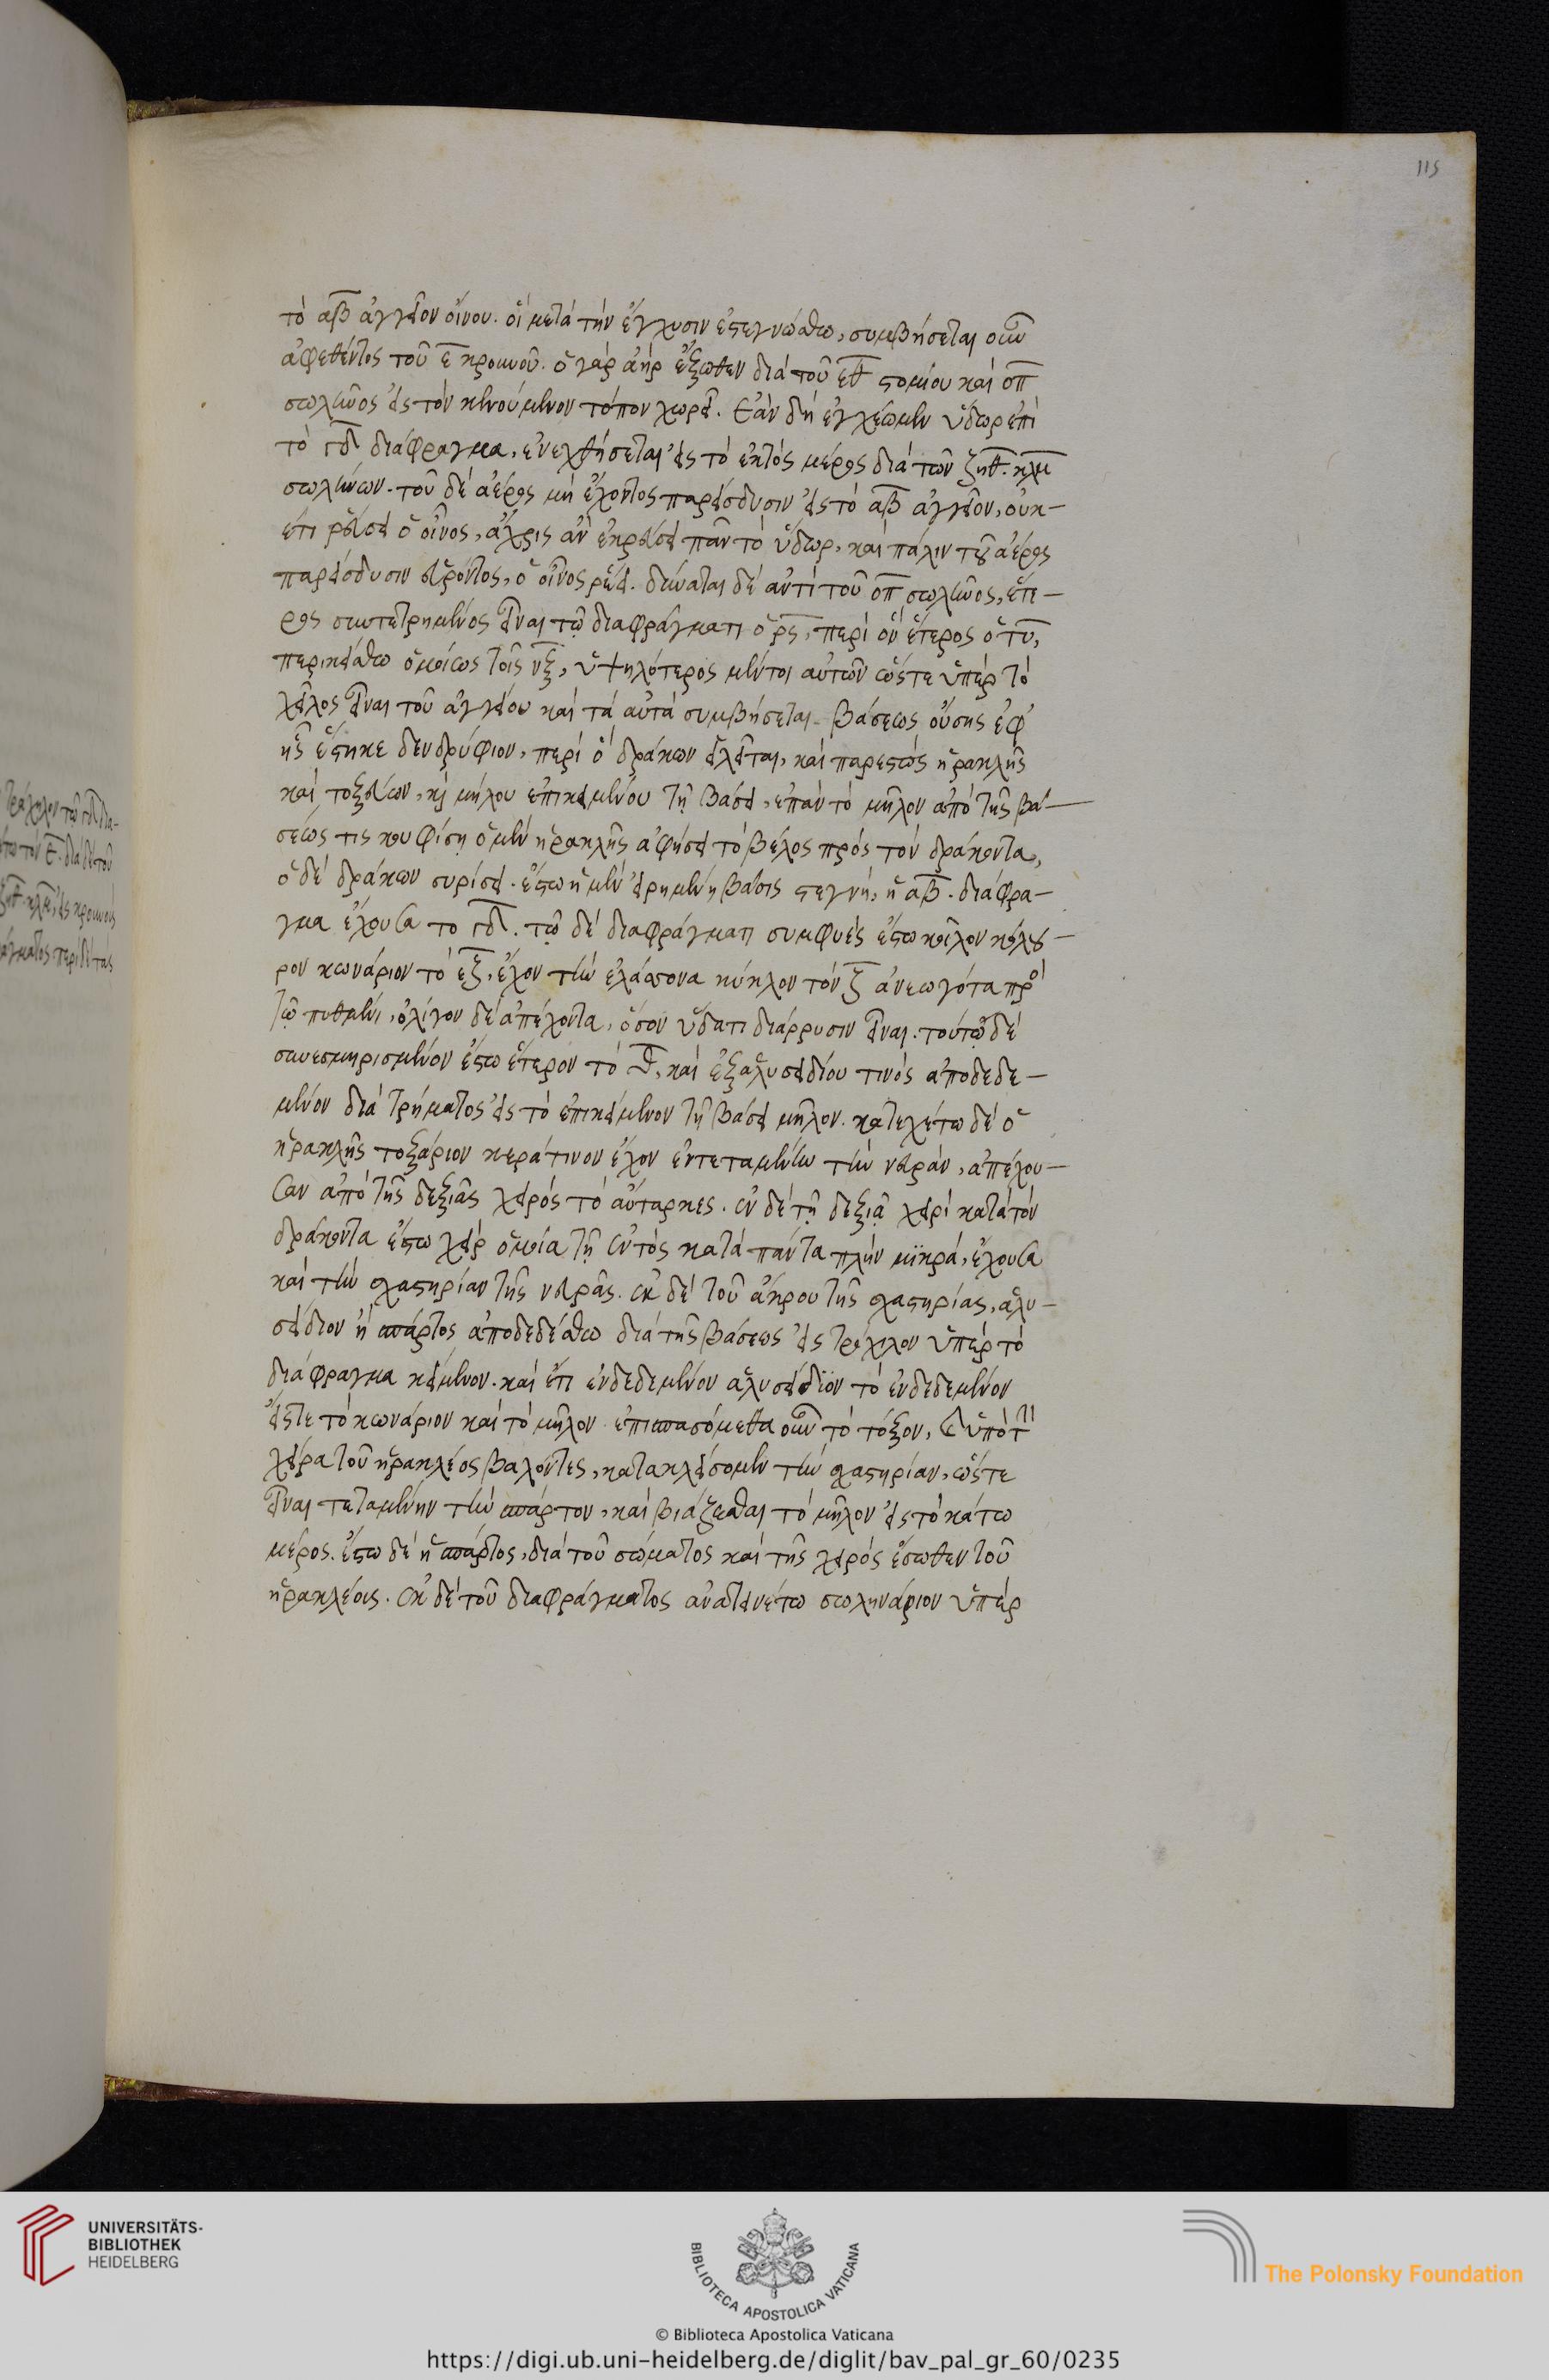 115
τὸ αβ ἀγγεῖον οἴνου. οἳ μετὰ τὴν ἔγχυσιν ἐστεγνώσθω, συμβήσεται οὖν
ἀφεθέντος τοῦ ε κρουνοῦ. ὁ γὰρ ἀὴρ ἔξωθεν διὰ τοῦ εθ στομίου καὶ οπ
σωλῆνος εἰς τὸν κενούμενον τόπον χωρεῖ. Ἐὰν δὴ ἐγχέωμεν ὕδωρ ἐπὶ
τὸ γδ διάφραγμα, ἐνεχθήσεται εἰς τὸ ἐκτὸς μέρος διὰ τῶν ζηθ. κλμ
σωλήνων. τοῦ δὲ ἀέρος μὴ ἔχοντος παρείσδυσιν εἰς τὸ αβ ἀγγεῖον, οὐκ-
έτι ῥεύσει ὁ οἶνος, ἄχρις ἂν ἐκρεύσει πᾶν τὸ ὕδωρ, καὶ πάλιν τοῦ ἀέρος
παρείσδυσιν εὑρόντος, ὁ οἶνος ῥεύσει. δύναται δὲ ἀντὶ τοῦ οπ σωλῆνος, ἕτε-
ρος συντετρημένος εἶναι τῷ διαφράγματι ὁ ρς, περὶ ὃν ἕτερος ὁ τυ,
περικείσθω ὁμοίως τοῖς νξ, ὑψηλότερος μέντοι αὐτῶν ὥστε ὑπὲρ τὸ
χεῖλος εἶναι τοῦ ἀγγείου καὶ τὰ αὐτὰ συμβήσεται. βάσεως οὔσης ἐφ'
ἧς ἕστηκε δενδρύφιον, περὶ ὃ δράκων εἱλεῖται, καὶ παρεστὼς ἡρακλῆς
καὶ τοξεύων, καὶ μήλου ἐπικειμένου τῇ βάσει, ἐπὰν τὸ μῆλον ἀπὸ τῆς βά-
σεώς τις κουφίσῃ ὁ μὲν ἡρακλῆς ἀφήσει τὸ βέλος πρὸς τὸν δράκοντα,
ὁ δὲ δράκων συρίσει. ἔστω ἡ μὲν εἰρημένη βάσις στεγνή, ἡ αβ. διάφρα-
γμα ἔχουσα το γδ. τῷ δὲ διαφράγματι συμφυὲς ἔστω κοῖλον κόλου-
ρον κωνάριον τὸ εζ, ἔχον τὸν ἐλάσσονα κύκλον τὸν ζ ἀνεωγότα πρὸς
τῷ πυθμένι, ὀλίγον δὲ ἀπέχοντα, ὅσον ὕδατι διάρρυσιν εἶναι. τούτῳ δὲ
συνεσμηρισμένον ἔστω ἕτερον τὸ θ, καὶ ἐξ ἁλυσειδίου τινὸς ἀποδεδε-
μένον διὰ τρήματος εἰς τὸ ἐπικείμενον τῇ βάσει μῆλον. κατεχέτω δὲ ὁ
ἡρακλῆς τοξάριον κεράτινον ἔχον ἐντεταμένην τὴν νευράν, ἀπέχου-
σαν ἀπὸ τῆς δεξιᾶς χειρὸς τὸ αὔταρκες. ἐν δὲ τῇ δεξιᾷ χειρὶ κατὰ τὸν
δράκοντα ἔστω χεὶρ ὁμοία τῇ ἐντὸς κατὰ πάντα πλὴν μικρά, ἔχουσα
καὶ τὴν σχαστηρίαν τῆς νευρᾶς. ἐκ δὲ τοῦ ἄκρου τῆς σχαστηρίας, ἁλυ-
σείδιον ἢ σπάρτος ἀποδεδέσθω διὰ τῆς βάσεως εἰς τρόχιλον ὑπὲρ τὸ
διάφραγμα κείμενον. καὶ ἔτι ἐνδεδεμένον ἁλυσείδιον τὸ ἐνδεδεμένον
εἴς τε τὸ κωνάριον καὶ τὸ μῆλον. ἐπισπασόμεθα οὖν τὸ τόξον, καὶ ὑπὸ τὴν
χεῖρα τοῦ ἡρακλέος βαλόντες, κατακλείσομεν τὴν σχαστηρίαν, ὥστε
εἶναι τεταμένην τὴν σπάρτον, καὶ βιάζεσθαι τὸ μῆλον εἰς τὸ κάτω
μέρος. ἔστω δὲ ἡ σπάρτος, διὰ τοῦ σώματος καὶ τῆς χειρὸς ἔσωθεν τοῦ
ἡρακλέους. ἐκ δὲ τοῦ διαφράγματος ἀνατεινέτω σωληνάριον ὑπὲρ
UNIVERSITÄTS-
BIBLIOTHEK
HEIDELBERG
BIBLIOTECA APOSTOLICA VATICANA
The Polonsky Foundation
© Biblioteca Apostolica Vaticana
https://digi.ub.uni-heidelberg.de/diglit/bav_pal_gr_60/0235